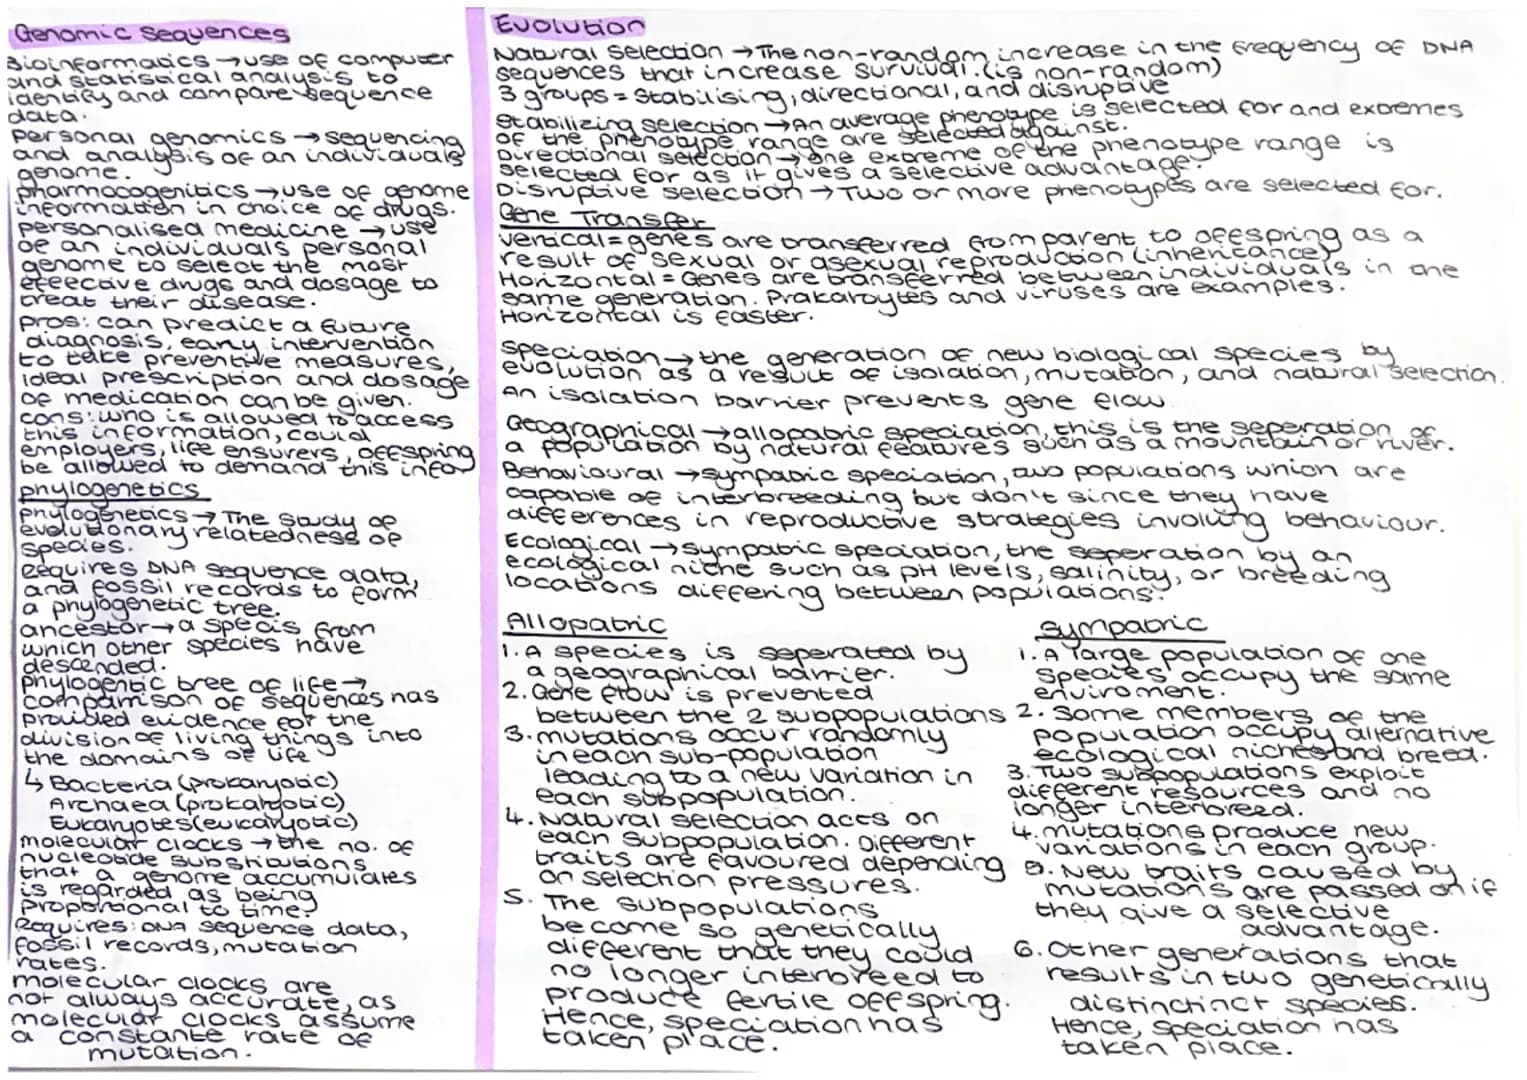 Genomic Sequences
Bioinformatics → use of computer
and statistical analysis to
identify and compare sequence
data.
personal genomics → sequencing
and analysis of an individuals
genome.
pharmacogenitics → use of genome
information in choice of drugs.
personalised medicine → use
of an individuals personal
genome to select the most
effective drugs and dosage to
treat their disease.
pros: can predict a future
diagnosis, early intervention
to take preventive measures,
ideal prescription and dosage
of medication can be given.
cons: who is allowed to access
this information, could
employers, life ensurers, offspring
be allowed to demand this info
phylogenetics
phylogenetics → The study of
evolutionary relatedness of
species.
Requires DNA sequence data,
and fossil records to form
a phylogenetic tree.
ancestor → a specis from
which other species have
descended.
phylogentic tree of life →
comparison of sequences has
provided evidence for the
division of living things into
the domains of life
↳ Bacteria (prokaryotic)
Archaea (prokaryotic)
Eukaryotes (eukaryotic)
molecular clocks → the no. of
nucleotide substitutions
that a genome accumulates
is regarded as being
proportional to time.
Requires: DNA sequence data,
fossil records, mutation
rates.
molecular clocks are
not always accurate, as
molecular clocks assume
a constante rate of
mutation.
Evolution
Natural Selection → The non-random increase in the frequency of DNA
sequences that increase survival. (is non-random)
3 groups = Stabilising, directional, and disruptive
Stabilizing selection → An average phenotype is selected for and extremes
of the phenotype range are selected against.
Directional selection → one extreme of the phenotype range is
selected for as it gives a selective advantage.
Disruptive selection → Two or more phenotypes are selected for.
Gene Transfer
Vertical = genes are transferred from parent to offspring as a
result of sexual or asexual reproduction (inheritance)
Horizontal = Genes are transferred between individuals in the
same generation. Prakaroytes and viruses are examples.
Horizontal is faster.
Speciation → the generation of new biological species by
evolution as a result of isolation, mutation, and natural selection.
An isolation barrier prevents gene flow
Geographical → allopatric speciation, this is the seperation of
a population by natural features such as a mountain or river.
Behavioural → sympatric speciation, two populations which are
capable of interbreeding but don't since they have
differences in reproductive strategies involving behaviour.
Ecological → sympatric speciation, the seperation by an
ecological niche such as pH levels, salinity, or breeding
locations differing between populations.
Allopatric
1. A species is seperated by
a geographical barrier.
2. Gene flow is prevented
between the 2 subpopulations
3. mutations occur randomly
in each sub-population
leading to a new variation in
each subpopulation.
4. Natural selection acts on
each subpopulation. Different
traits are favoured depending
on selection pressures.
5. The subpopulations
become so genetically
different that they could
no longer interbreed to
produce fertile offspring.
Hence, speciation has
taken place.
Sympatric
1. A large population of one
species occupy the same
enviroment.
2. Some members of the
population occupy alternative
ecological niches and breed.
3. Two subpopulations exploit
different resources and no
longer interbreed.
4. mutations produce new
variations in each group.
5. New traits caused by
mutations are passed on if
they give a selective
advantage.
6. Other generations that
results in two genetically
distinctinct species.
Hence, speciation has
taken place.